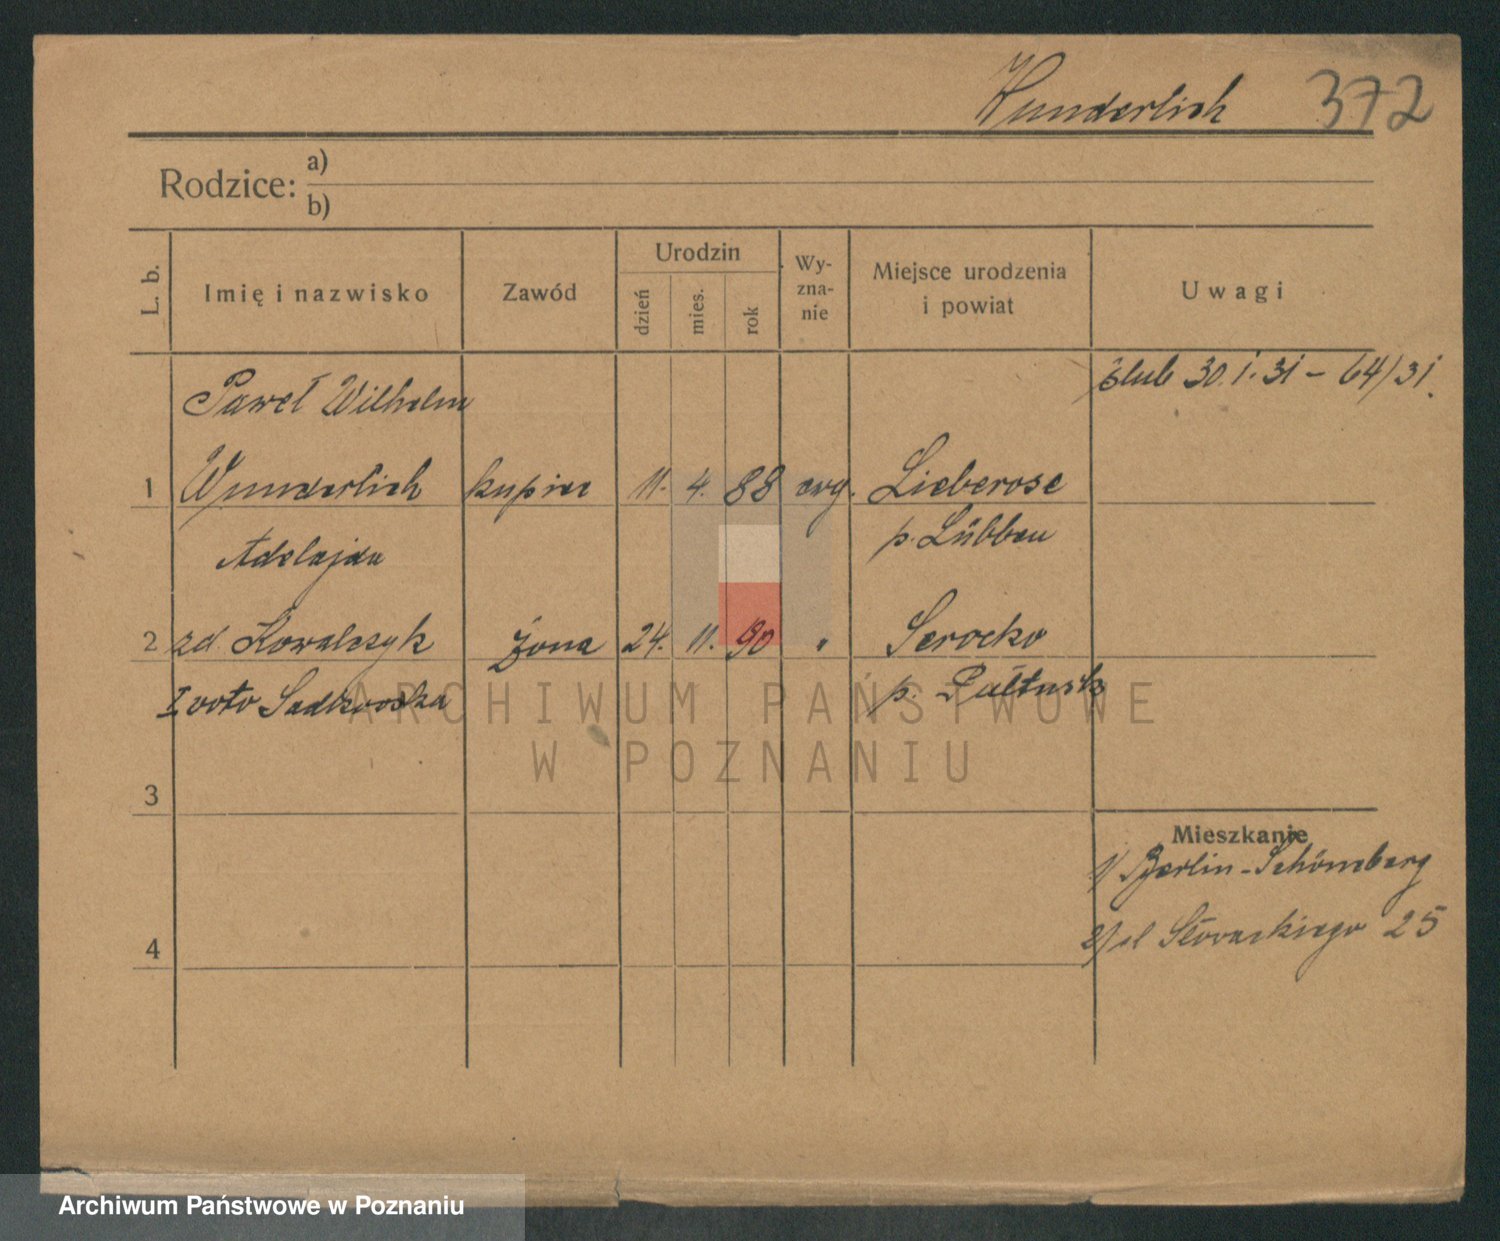 Wunderlich 372
Rodzice: a)
b)
L. b.
Imię i nazwisko
Zawód
Urodzin
dzień
mies.
rok
Wy-
zna-
nie
Miejsce urodzenia
i powiat
Uwagi
ślub 30.1.31 – 64/31.
Paweł Wilhelm
1 Wunderlich kupiec 11. 4. 88 ewg. Lieberose
p. Lübben
Adelajda
2 zd Kowalczyk żona 24. 11. 90 " Serocko
I voto Sadkowska p. Pułtusk
ARCHIWUM PAŃSTWOWE
W POZNANIU
3
Mieszkanie
1/ Berlin-Schöneberg
2/ Słowackiego 25
4
Archiwum Państwowe w Poznaniu